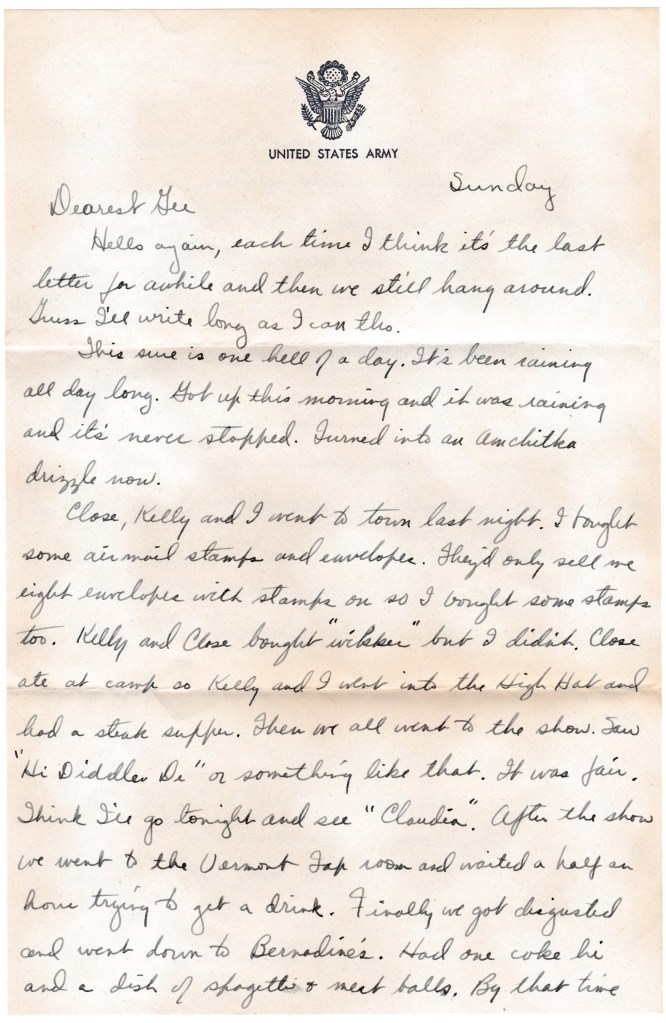 UNITED STATES ARMY
Sunday
Dearest Gee
Hello again, each time I think it's the last
letter for awhile and then we still hang around.
Guess I'll write long as I can tho.
This sure is one hell of a day. It's been raining
all day long. Got up this morning and it was raining
and it's never stopped. Turned into an Amchitka
drizzle now.
Close, Kelly and I went to town last night. I bought
some air mail stamps and envelopes. They'd only sell me
eight envelopes with stamps on so I bought some stamps
too. Kelly and Close bought "wilskee" but I didn't. Close
ate at camp so Kelly and I went into the High Hat and
had a steak supper. Then we all went to the show. Saw
"Hi Diddler De" or something like that. It was fair.
Think I'll go tonight and see "Claudia". After the show
we went to the Vermont Tap room and waited a half an
hour trying to get a drink. Finally we got disgusted
and went down to Bernadine's. Had one coke hi
and a dish of spagetti & meat balls. By that time